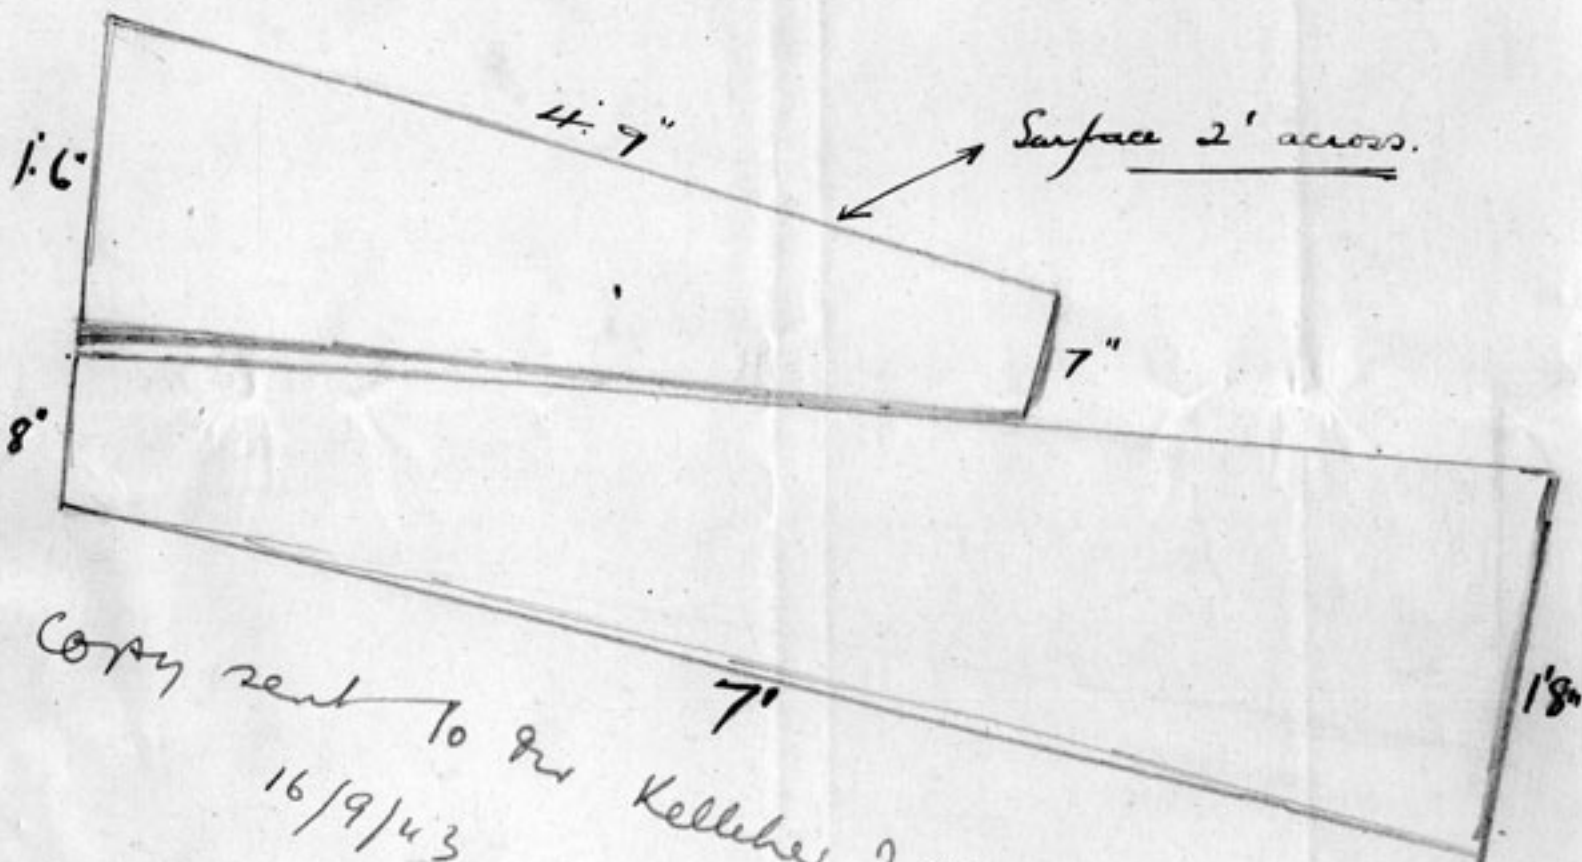 4' 9"
Surface 2' across.
1' 6"
7"
8"
7'
1'8"
Copy sent to Mr Kelleher
16/9/43